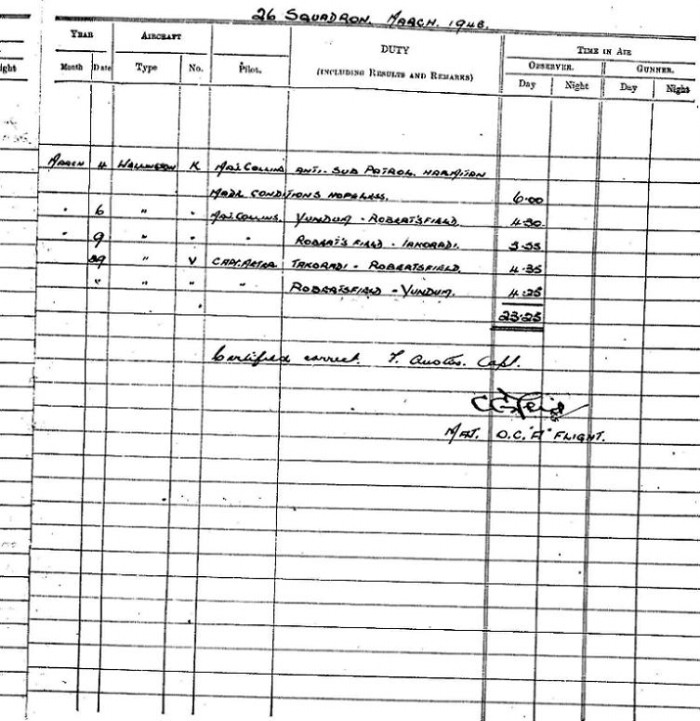 26 SQUADRON. MARCH. 1943.
YEAR AIRCRAFT DUTY TIME IN AIR
OBSERVER. GUNNER.
ight Month Date Type No. Pilot. (INCLUDING RESULTS AND REMARKS) Day Night Day Night
MARCH 4 WELLINGTON K MAJ. COLLINS ANTI-SUB PATROL.
CONDITIONS HOPELESS. 6.00
" 6 " " MAJ. COLLINS. YUNDUM - ROBERTSFIELD. 4.30
" 9 " " " ROBERTSFIELD - TAKORADI. 3.55
29 " V CAPT. TAKORADI - ROBERTSFIELD. 4.35
" " " " ROBERTSFIELD - YUNDUM. 4.25
23.25
Certified correct. Capt.
MAJ. O.C. "A" FLIGHT.